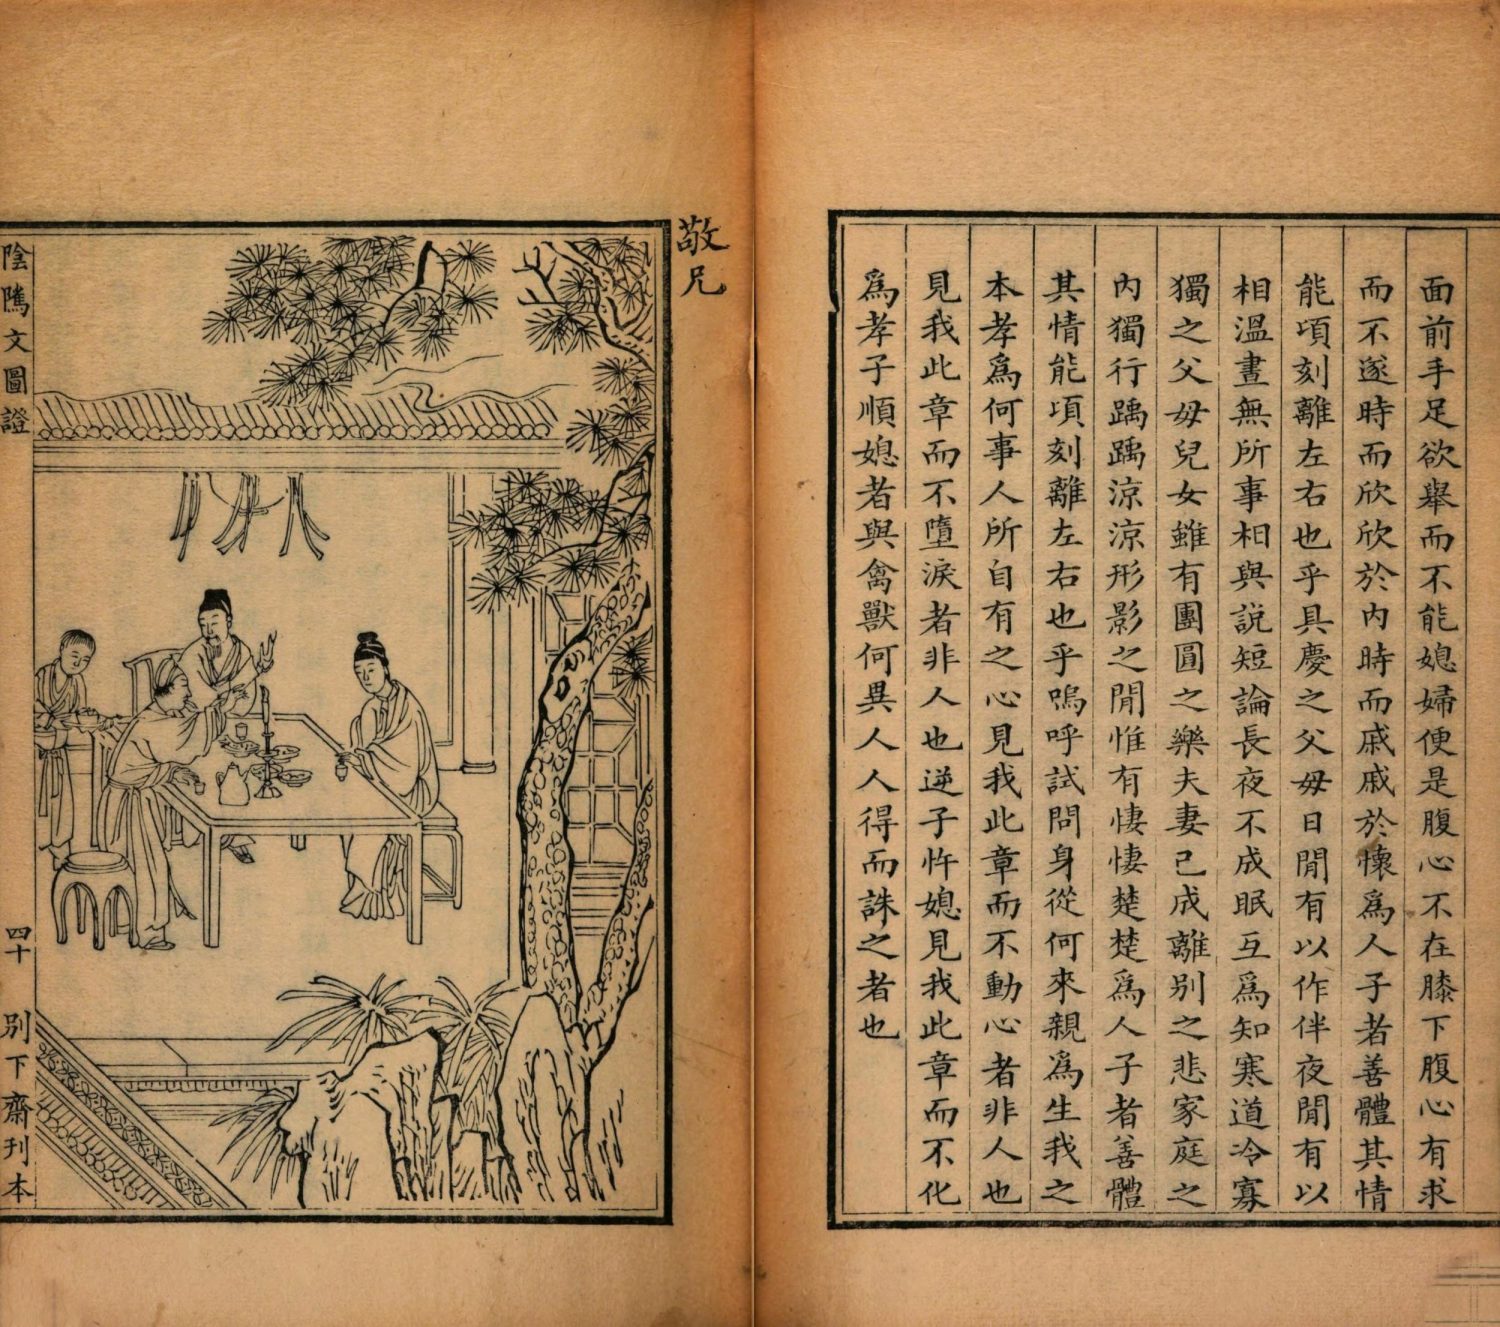 面前手足欲舉而不能媳婦便是腹心不在膝下腹心有求
而不遂時而欣欣於內時而戚戚於懷爲人子者善體其情
能頃刻離左右也乎具慶之父母日閒有以作伴夜閒有以
相溫晝無所事相與說短論長夜不成眠互爲知寒道冷寡
獨之父母兒女雖有團圓之樂夫妻已成離別之悲家庭之
內獨行踽踽涼涼形影之閒惟有悽悽楚楚爲人子者善體
其情能頃刻離左右也乎嗚呼試問身從何來親爲生我之
本孝爲何事人所自有之心見我此章而不動心者非人也
見我此章而不墮淚者非人也逆子忤媳見我此章而不化
爲孝子順媳者與禽獸何異人人得而誅之者也
敬兄
陰隲文圖證
四十
別下齋刊本